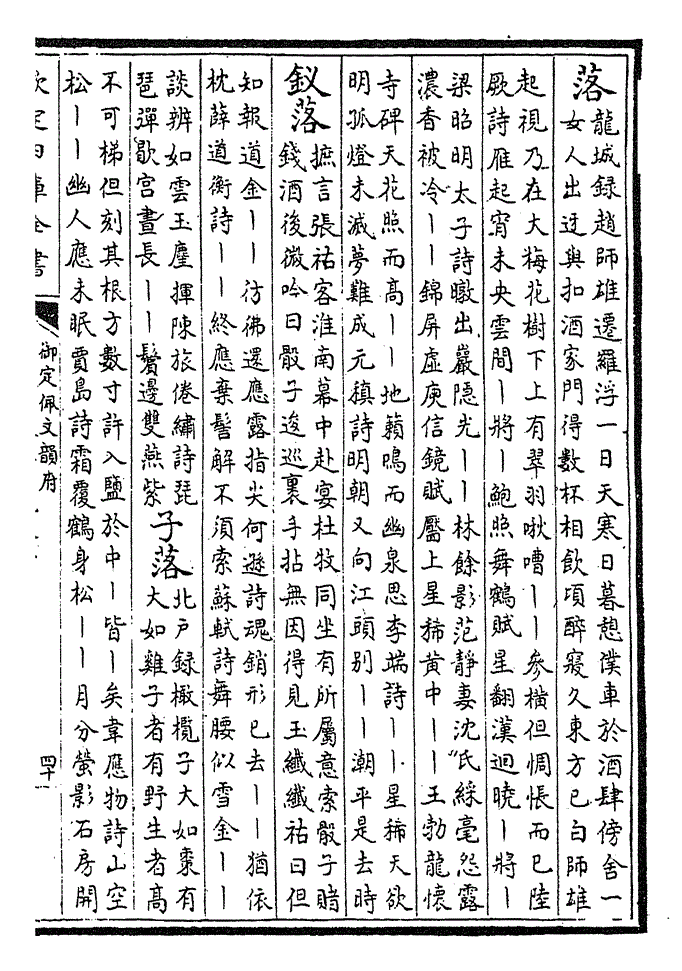 落
龍城録趙師雄遷羅浮一日天寒日暮憩僕車於酒肆傍舍一
女人出迓與扣酒家門得數杯相飲頃醉寢久東方已白師雄
起視乃在大梅花樹下上有翠羽啾嘈丨丨參橫但惆悵而已陸
厥詩雁起宵未央雲間丨將丨鮑照舞鶴賦星翻漢迴曉丨將丨
梁昭明太子詩暾出巖隱光丨丨林餘影范靜妻沈氏綵毫怨露
濃香被冷丨丨錦屏虛庾信鏡賦靨上星稀黃中丨丨王勃龍懷
寺碑天花照而高丨丨地籟鳴而幽泉思李端詩丨丨星稀天欲
明孤燈未滅夢難成元稹詩明朝又向江頭别丨丨潮平是去時
釵落
摭言張祐客淮南幕中赴宴杜牧同坐有所屬意索骰子賭
錢酒後微吟曰骰子逡巡裹手拈無因得見玉纖纖祐曰但
知報道金丨丨彷彿還應露指尖何遜詩魂銷形已去丨丨猶依
枕薛道衡詩丨丨終應棄髻解不須索蘇軾詩舞腰似雪金丨丨
談辨如雲玉麈揮陳旅倦繡詩琵
琶彈歇宫晝長丨丨鬢邊雙燕紫
子落
北戸録橄欖子大如棗有
大如雞子者有野生者高
不可梯但刻其根方數寸許入鹽於中丨皆丨矣韋應物詩山空
松丨丨幽人應未眠賈島詩霜覆鶴身松丨丨月分螢影石房開
欽定四庫全書
御定佩文韻府
四十